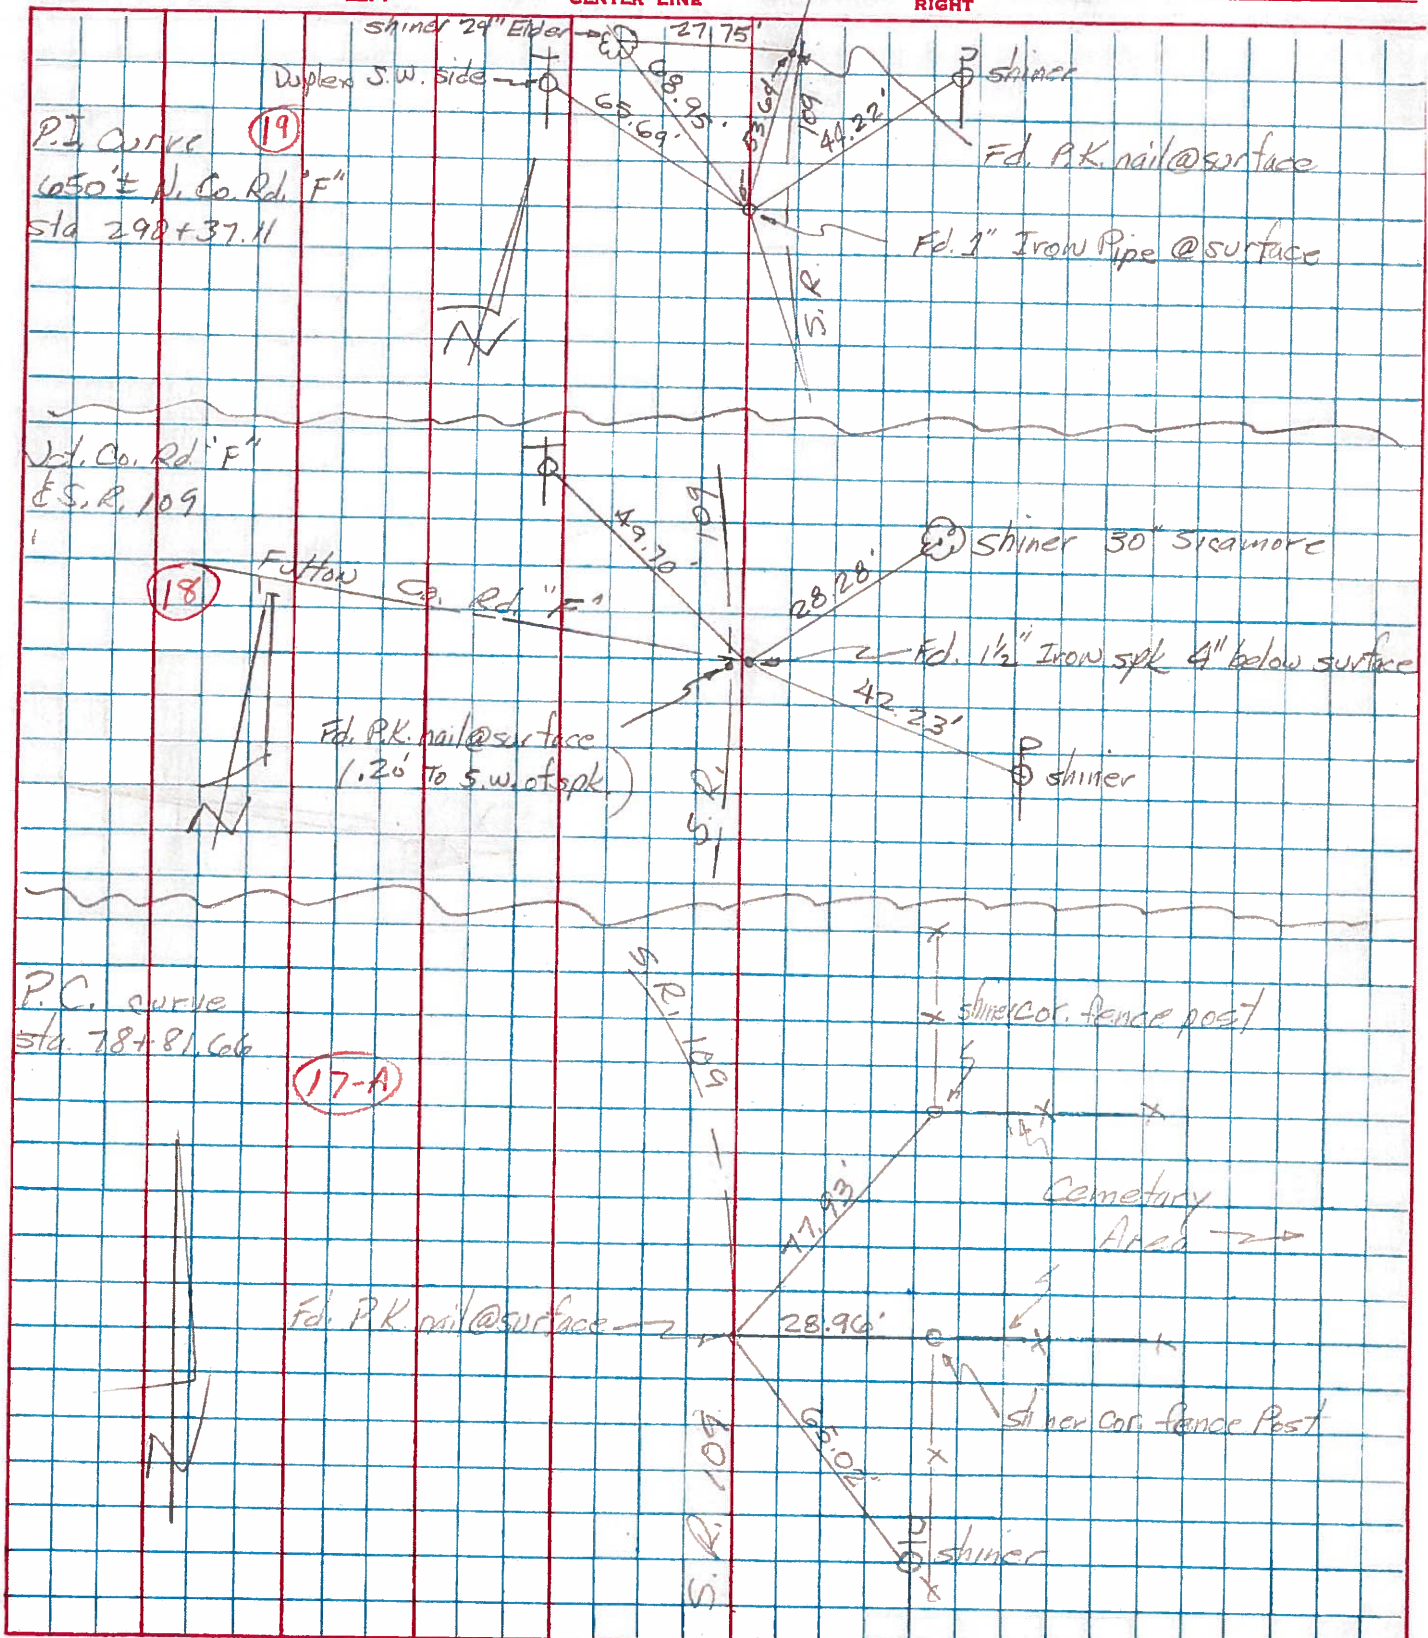 CENTER LINE
RIGHT
shiner 24" Elder
27.75'
Duplex S.W. side
68.95'
65.69'
53.64
109
44.22'
shiner
P.I. Curve
19
650'± N. Co. Rd. "F"
sta 290+37.11
Fd. P.K. nail@surface
Fd. 1" Iron Pipe @ surface
S.R.
N
Jct. Co. Rd. "F"
& S.R. 109
109
49.70'
shiner 30" Sicamore
28.28'
18
Fulton Co. Rd. "F"
Fd. 1½" Iron spk 4" below surface
42.23'
Fd. P.K. nail@surface
(.20' To S.W. of spk.)
shiner
S.R.
N
P.C. curve
sta. 78+81.66
17-A
S.R. 109
shiner cor. fence post
77.93'
Cemetary
Area
Fd. P.K. nail@surface
28.96'
shiner cor. fence Post
65.02'
N
S.R. 109
shiner